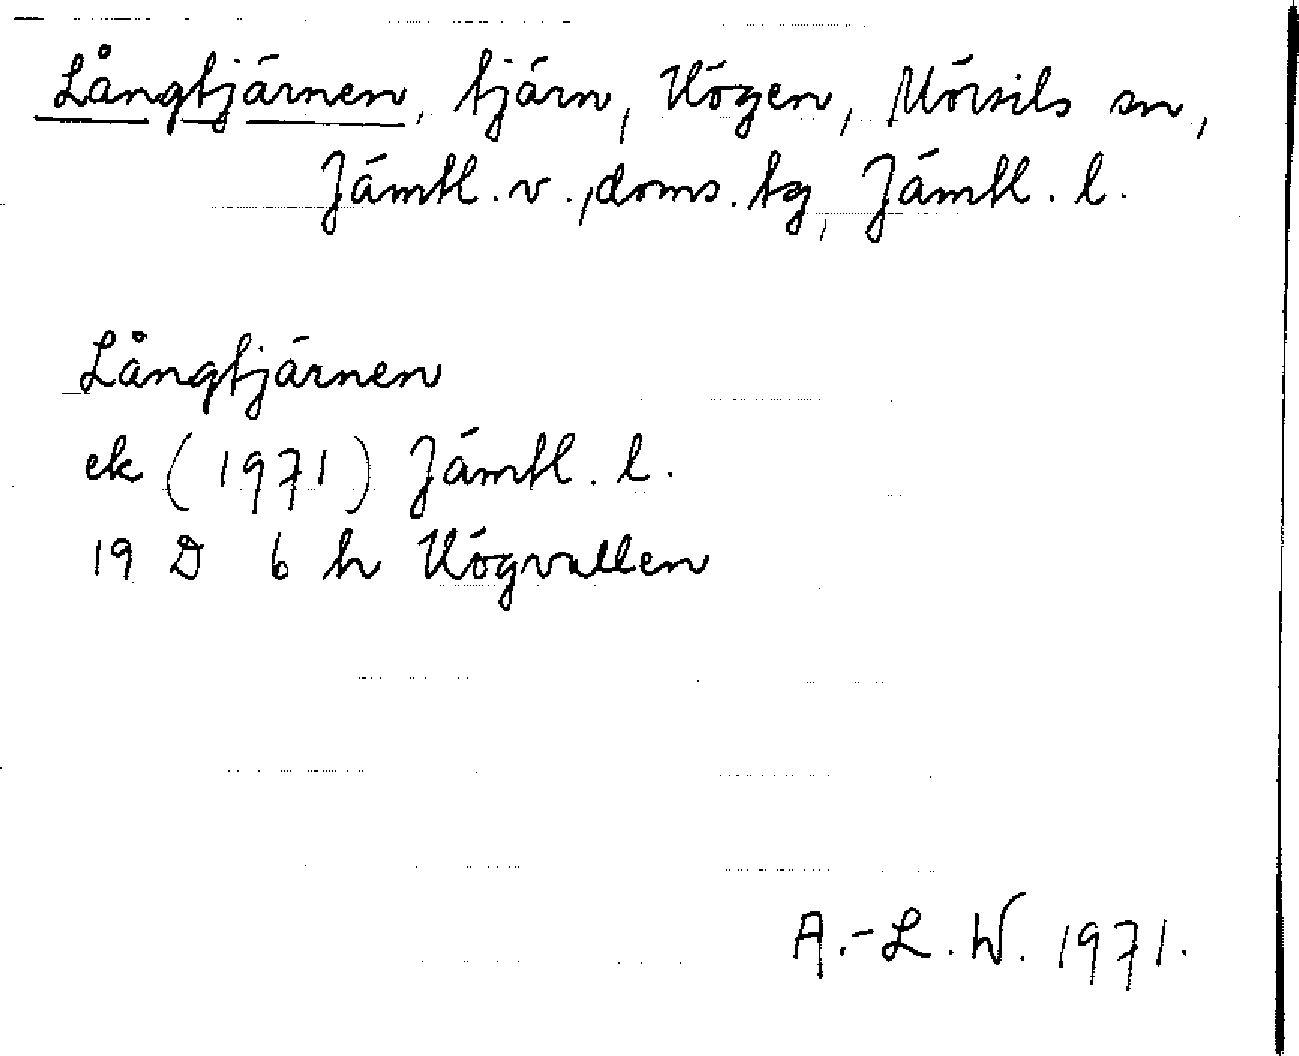 Långtjärnen, tjärn, Högen, Mörsils sn,
Jämtl. v., doms. tg, Jämtl. l.
Långtjärnen
ek (1971) Jämtl. l.
19 D 6 h Högvallen
A.-L. W. 1971.